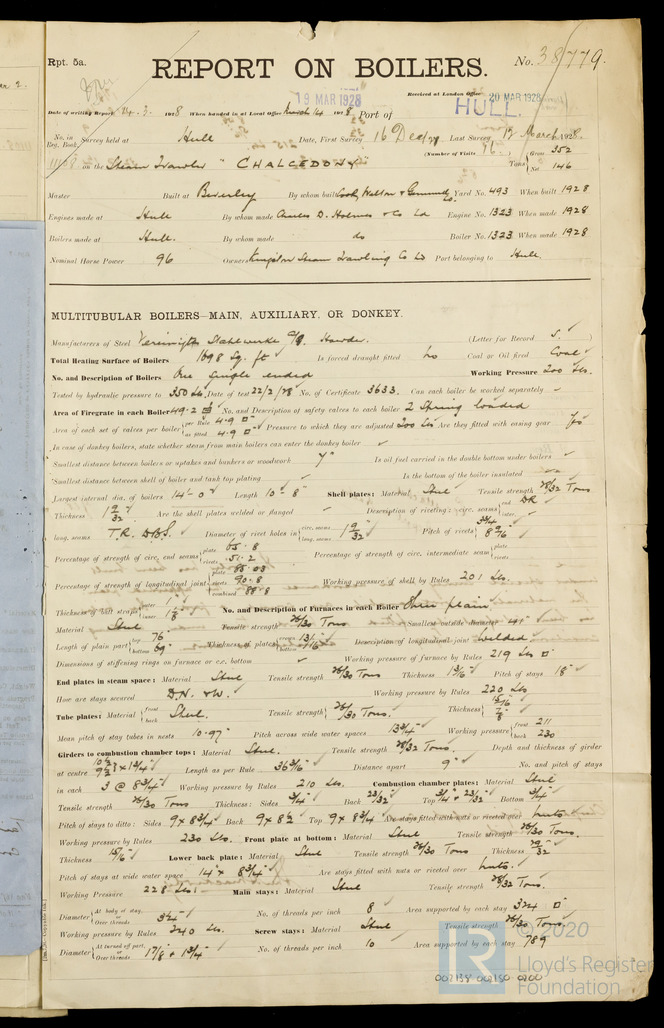 Rpt. 5a.
No. 38779.
REPORT ON BOILERS.
Received at London Office 20 MAR 1928
19 MAR 1928
HULL.
Date of writing Report 3. 1928 When handed in at Local Office March 14 1928 Port of
No. in Reg. Book. Survey held at Hull Date, First Survey 16 Dec/27 Last Survey 12 March 1928.
(Number of Visits 76.)
on the Steam Trawler "CHALCEDONY" Tons Gross 352 Net 146
Master Built at Beverley By whom built Cook, Welton & Gemmell Co. Yard No. 493 When built 1928
Engines made at Hull By whom made Charles D. Holmes & Co Ld Engine No. 1323 When made 1928
Boilers made at Hull. By whom made do Boiler No. 1323 When made 1928
Nominal Horse Power 96 Owners Kingston Steam Trawling Co Ld Port belonging to Hull
MULTITUBULAR BOILERS—MAIN, AUXILIARY, OR DONKEY.
Manufacturers of Steel Vereinigte Stahlwerke (Letter for Record S)
Total Heating Surface of Boilers 1698 Sq. ft Is forced draught fitted No Coal or Oil fired Coal
No. and Description of Boilers One Single ended Working Pressure 200 Lbs.
Tested by hydraulic pressure to 350 Lbs. Date of test 22/2/28 No. of Certificate 3633. Can each boiler be worked separately
Area of Firegrate in each Boiler 49.2 No. and Description of safety valves to each boiler 2 Spring loaded
Area of each set of valves per boiler per Rule 4.9 as fitted 4.9 Pressure to which they are adjusted 200 Lbs Are they fitted with easing gear Yes
In case of donkey boilers, state whether steam from main boilers can enter the donkey boiler
Smallest distance between boilers or uptakes and bunkers or woodwork 7" Is oil fuel carried in the double bottom under boilers
Smallest distance between shell of boiler and tank top plating Is the bottom of the boiler insulated
Largest internal dia. of boilers 14'-0" Length 10'-8" Shell plates: Material Steel Tensile strength 28/32 Tons
Thickness 1 9/32 Are the shell plates welded or flanged Description of riveting: circ. seams DR
long. seams T.R. D.B.S. Diameter of rivet holes in circ. seams long. seams 1 9/32 Pitch of rivets 3 3/4 8 9/16
Percentage of strength of circ. end seams plate 65.8 rivets 51.2 Percentage of strength of circ. intermediate seam plate rivets
Percentage of strength of longitudinal joint plate 85.03 rivets 90.8 combined 88.8 Working pressure of shell by Rules 201 Lbs.
Thickness of butt straps outer 1" inner 1 1/8 No. and Description of Furnaces in each Boiler Three plain
Material Steel Tensile strength 26/30 Tons Smallest outside diameter 41"
Length of plain part top 76" bottom 69" Thickness of plates crown bottom 13/16 Description of longitudinal joint welded
Dimensions of stiffening rings on furnace or c.c. bottom Working pressure of furnace by Rules 219 Lbs
End plates in steam space: Material Steel Tensile strength 26/30 Tons Thickness 1 3/16 Pitch of stays 18"
How are stays secured D.N. & W. Working pressure by Rules 220 Lbs
Tube plates: Material front back Steel. Tensile strength 26/30 Tons. Thickness 15/16 7/8
Mean pitch of stay tubes in nests 10.97" Pitch across wide water spaces 13 3/4 Working pressure front 211 back 230
Girders to combustion chamber tops: Material Steel. Tensile strength 28/32 Tons. Depth and thickness of girder
at centre 10 1/2 9 1/2 x 1 3/4 Length as per Rule 36 3/16 Distance apart 9" No. and pitch of stays
in each 3 @ 8 3/4 Working pressure by Rules 210 Lbs. Combustion chamber plates: Material Steel
Tensile strength 26/30 Tons Thickness: Sides 3/4 Back 23/32 Top 3/4 + 23/32 Bottom 3/4
Pitch of stays to ditto: Sides 9 x 8 3/4 Back 9 x 8 1/2 Top 9 x 8 3/4 Are stays fitted with nuts or riveted over nuts
Working pressure by Rules 230 Lbs. Front plate at bottom: Material Steel Tensile strength 26/30 Tons.
Thickness 15/16 Lower back plate: Material Steel Tensile strength 26/30 Tons Thickness 29/32
Pitch of stays at wide water space 14" x 8 3/4 Are stays fitted with nuts or riveted over nuts.
Working Pressure 228 Lbs. Main stays: Material Steel Tensile strength 28/32 Tons.
Diameter At body of stay, or Over threads 3 1/4 No. of threads per inch 8 Area supported by each stay 324
Working pressure by Rules 240 Lbs. Screw stays: Material Steel Tensile strength 26/30 Tons.
Diameter At turned off part, or Over threads 1 7/8 + 1 3/4 No. of threads per inch 10 Area supported by each stay 78.9
002138 002150 0200
© 2020
LR
Lloyd's Register
Foundation